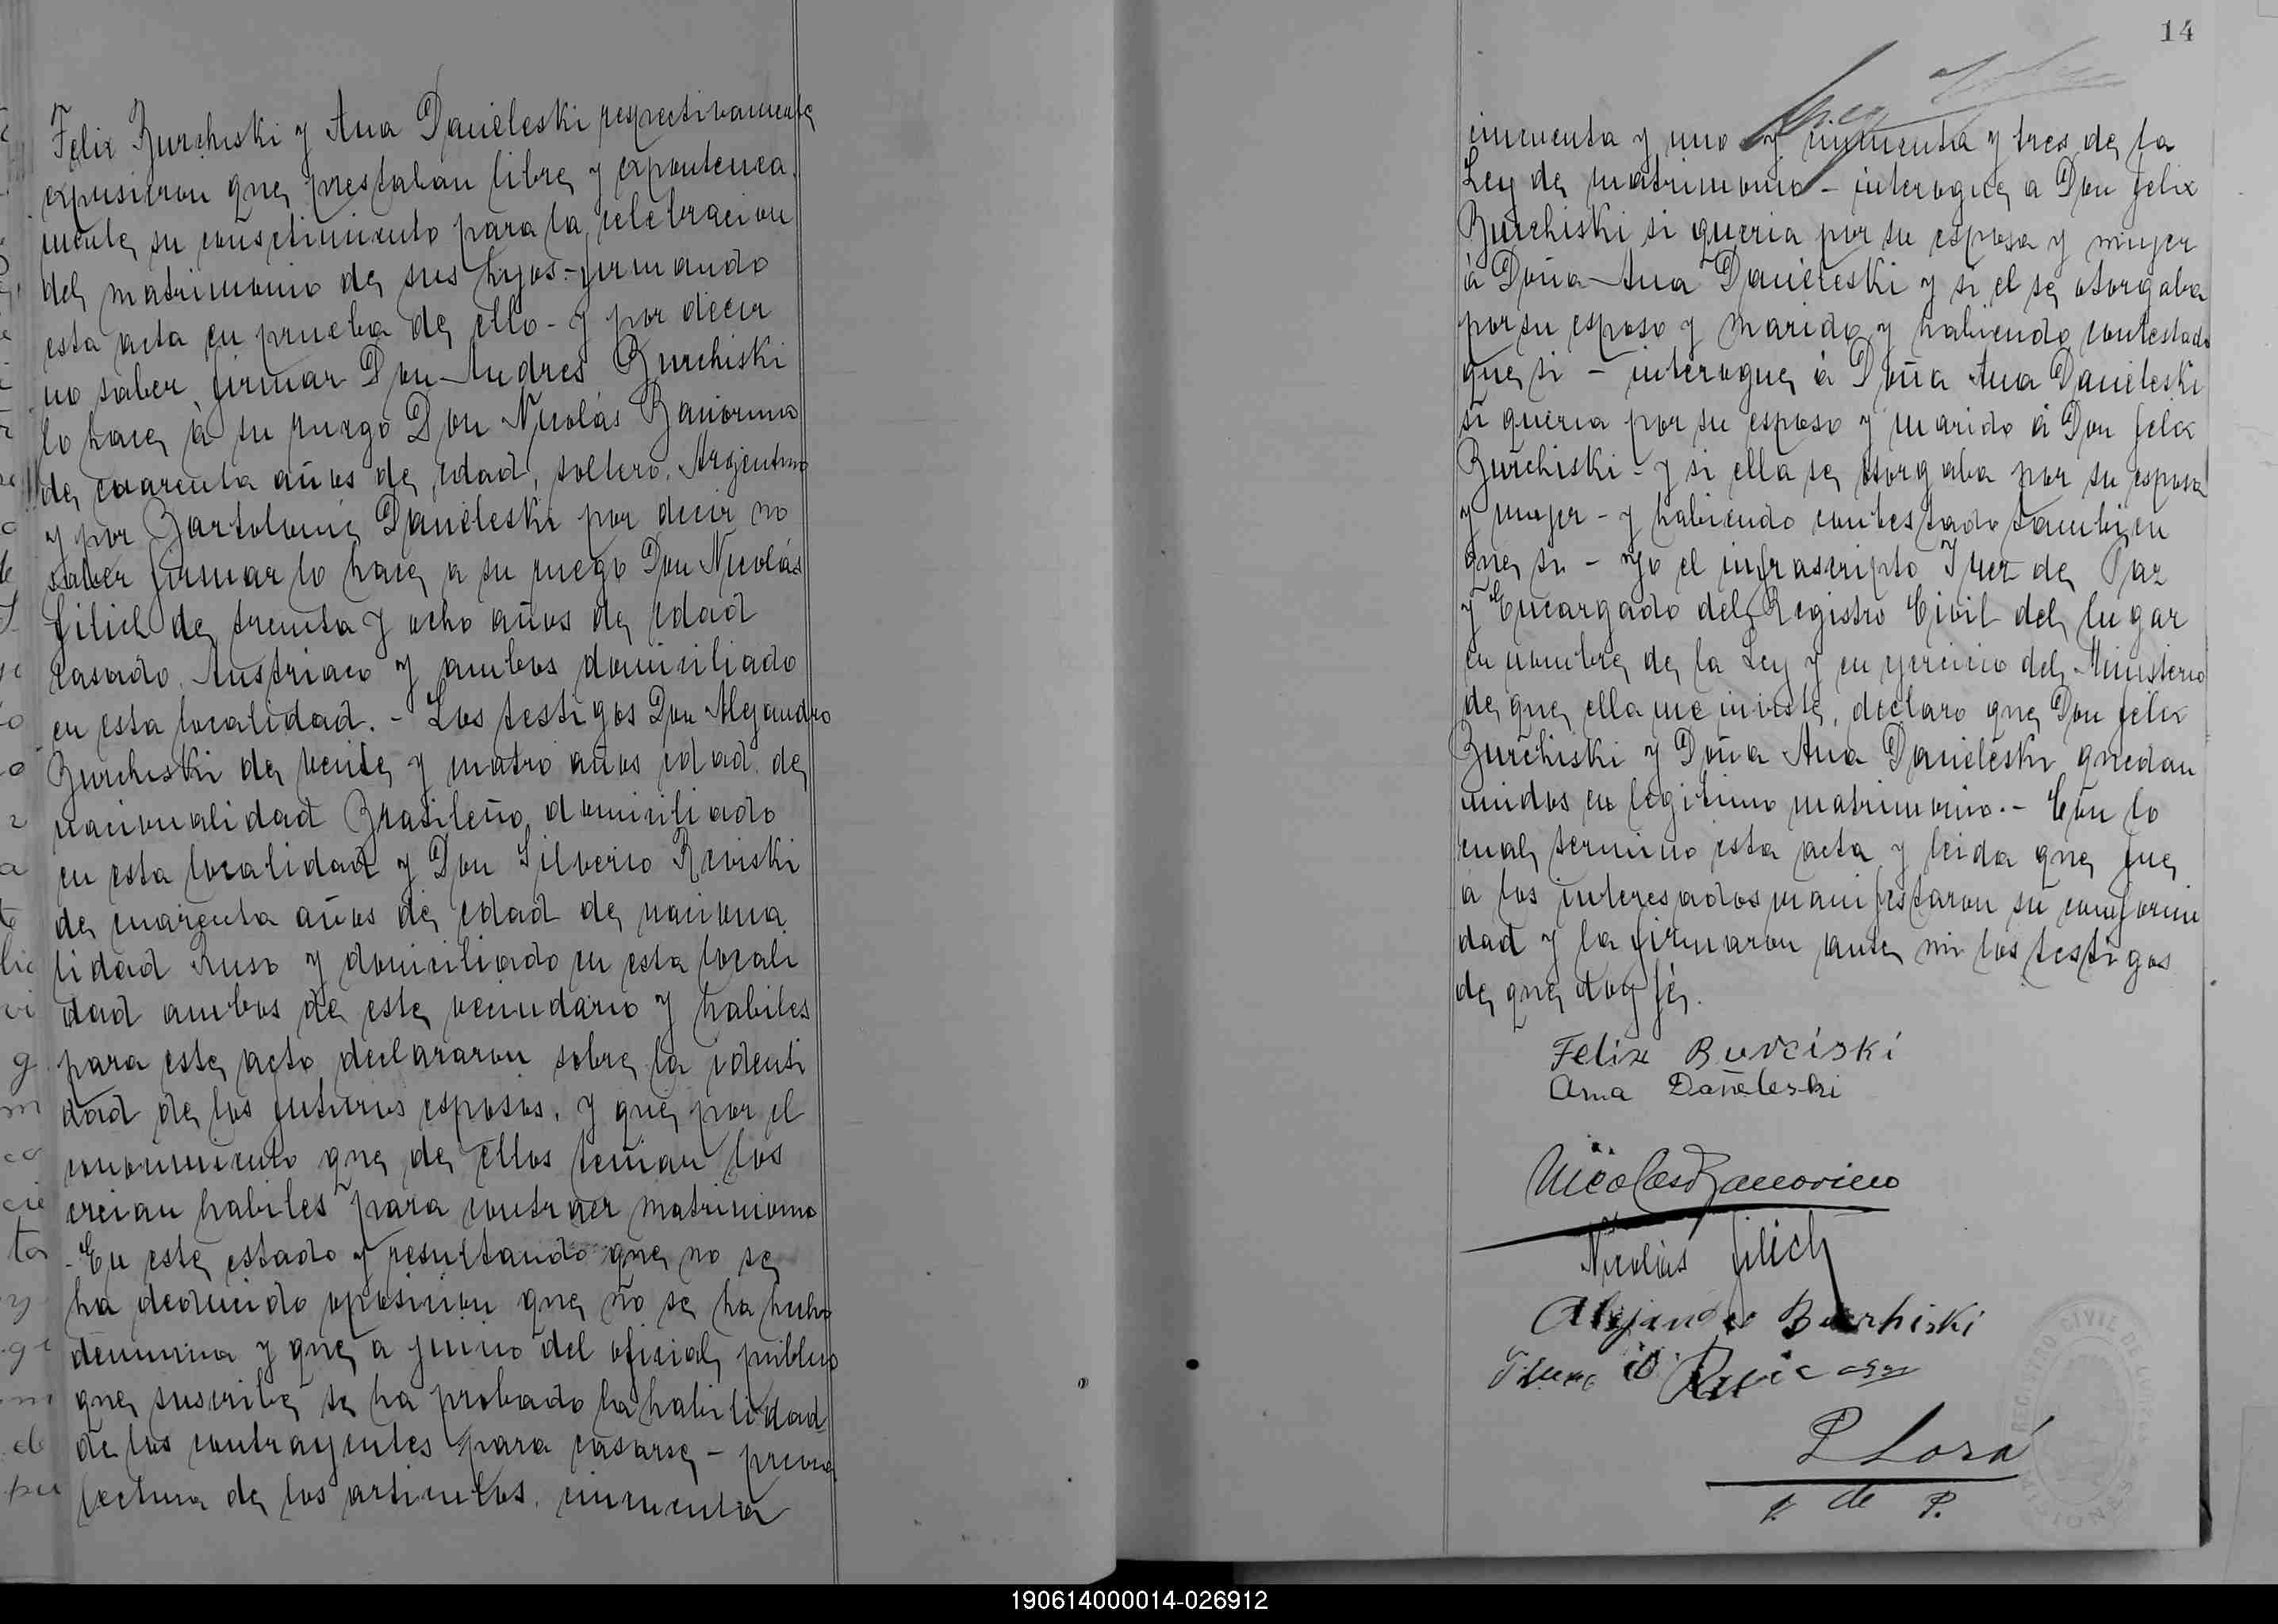 Felix Burchiski y Ana Danieleski respectivamente
expusieron que prestaban libre y expontenea
mente su consetimiento para la celebracion
del matrimonio de sus hijos - firmando
esta acta en prueba de ello - y por decir
no saber firmar Don Andres Burchiski
lo hace à su ruego Don Nicolás
de cuarenta años de edad, soltero, Argentino
y por Bartolomé Danieleski por decir no
saber firmar lo hace a su ruego Don Nicolás
Filich de treinta y ocho años de edad
casado, Austriaco y ambos domiciliado
en esta localidad. - Los testigos Don Alejandro
Burchiski de veinte y cuatro años edad de
nacionalidad Brasileño domiciliado
en esta localidad y Don Silverio
de cuarenta años de edad de naciona
lidad Ruso y domiciliado en esta locali
dad ambos de este vecindario y habiles
para este acto declararon sobre la identi
dad de los futuros esposos, y que por el
conocimiento que de ellos tenian los
creian habiles para contraer matrimonio
- En este estado y resultando que no se
ha deducido oposicion que no se ha hecho
denuncia y que a juicio del oficial publico
que suscribe se ha probado la habilidad
de los contrayentes para casarse - previa
lectura de los articulos, cincuenta
14
cincuenta y uno y cincuenta y tres de la
Ley de matrimonio - interogue a Don Felix
Burchiski si queria por su esposa y mujer
à Doña Ana Danieleski y si el se otorgaba
por su esposo y marido y habiendo contestado
que si - interogue à Doña Ana Danieleski
si queria por su esposo y marido à Don Felix
Burchiski - y si ella se otorgaba por su esposa
y mujer - y habiendo contestado tambien
que si - Yo el infrascripto Juez de Paz
y Encargado del Registro Civil del lugar
en nombre de la Ley y en ejercicio del Ministerio
de que ella me inviste, declaro que Don Felix
Burchiski y Doña Ana Danieleski quedan
unidos en legitimo matrimonio. - Con lo
cual termino esta acta y leida que fue
a los interesados manifestaron su conformi
dad y la firmaron ante mi los testigos
de que doy fé.
Felix Burciski
Ana Dañeleski
Nicolas
Nicolás Filich
Alejandro Burchiski
P Losá
J. de P.
REGISTRO CIVIL DE
MISIONES
190614000014-026912